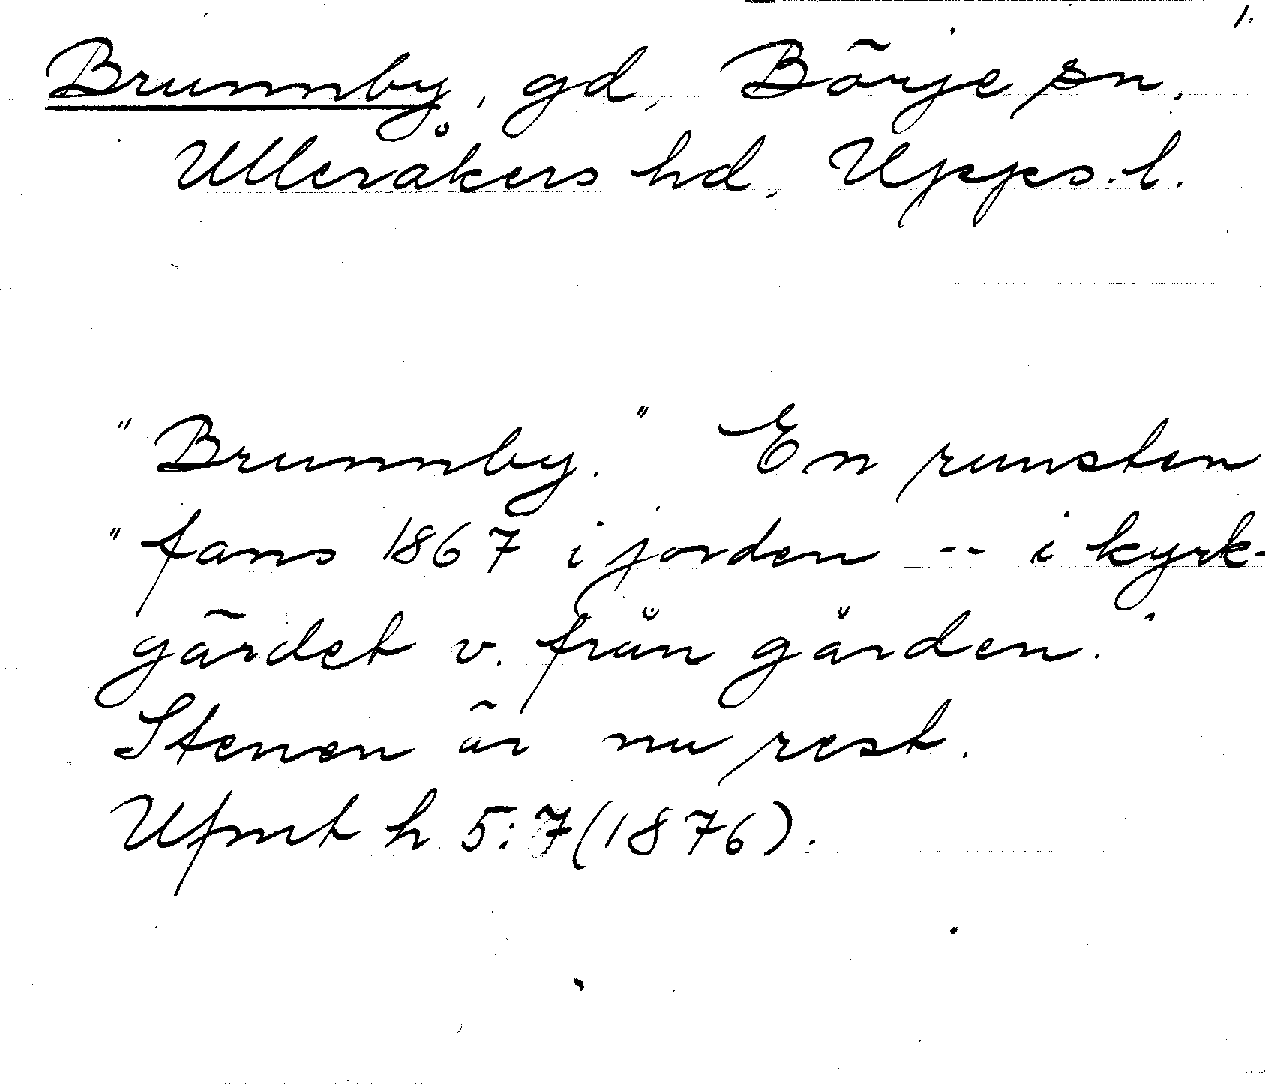 1.
Brunnby, gd, Börje sn,
Ulleråkers hd, Upps. l.
"Brunnby." En runsten
"fans 1867 i jorden -- i kyrk-
gärdet v. från gården."
Stenen är nu rest.
Ufmt h 5:7(1876).